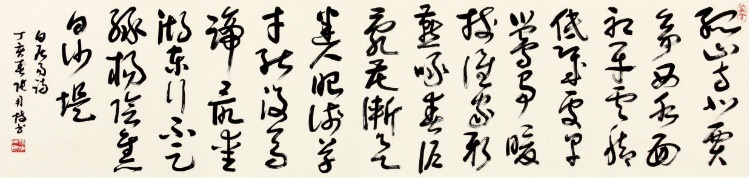 孤山寺北贾
亭西水面
初平云脚
低几处早
莺争暖
树谁家新
燕啄春泥
乱花渐欲
迷人眼浅草
才能没马
蹄最爱
湖东行不足
绿杨阴里
白沙堤
白居易诗
丁亥